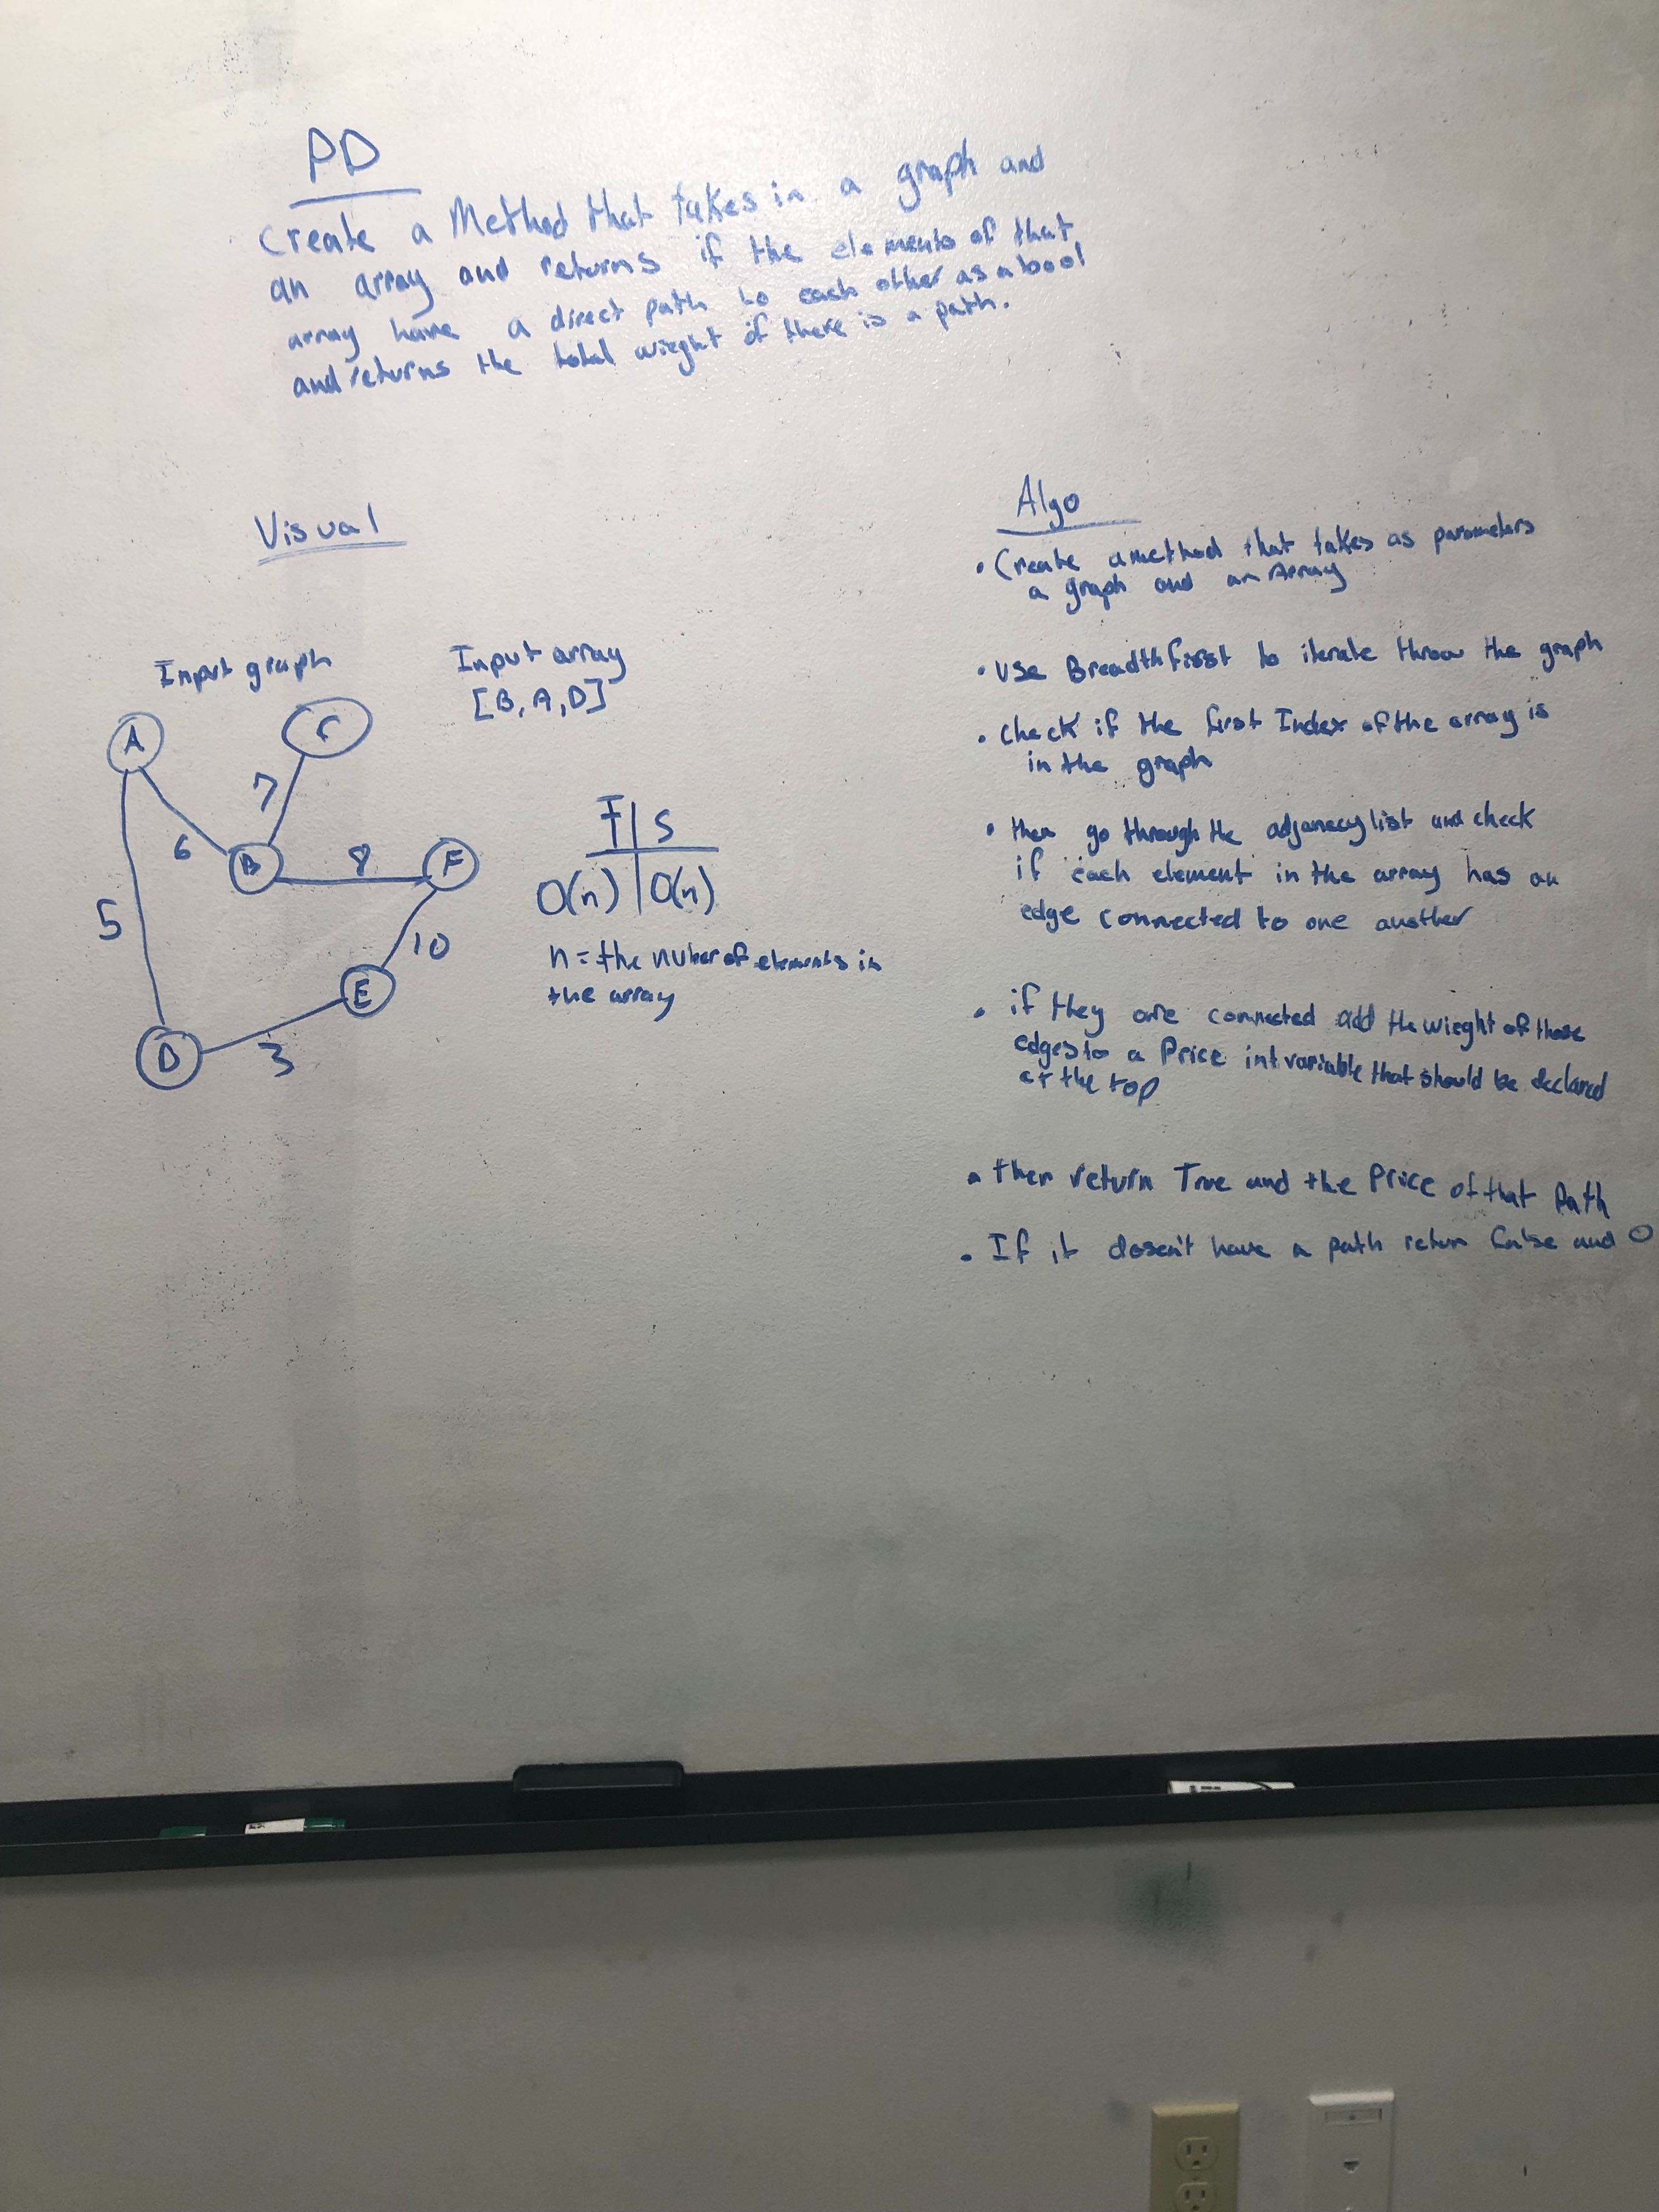 PD
Create a Method that takes in a graph and
an array and returns if the elements of that
array have a direct path to each other as a bool
and returns the total wieght if there is a path.
Visual
Input graph
Input array
[B, A, D]
A
C
7
6
B
8
F
5
10
E
D
3
T | S
O(n) | O(n)
n = the nuber of elements in
the array
Algo
• Create a method that takes as parameters
a graph and an Array
• Use Breadth first to iterate throw the graph
• Check if the first Index of the array is
in the graph
• then go through the adjanecy list and check
if each element in the array has an
edge connected to one another
• if they are connected add the wieght of those
edges to a Price int variable that should be declared
at the top
• then return True and the Price of that Path
• If it dosen't have a path return false and 0